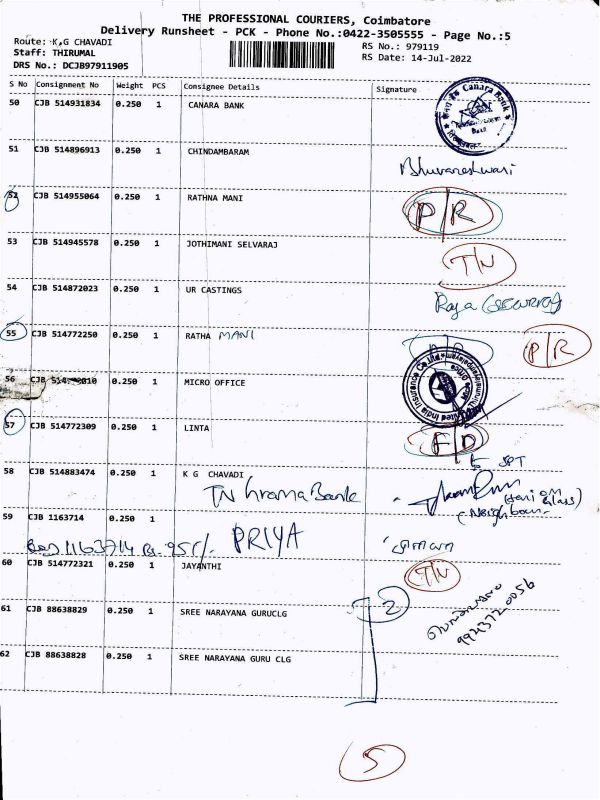 THE PROFESSIONAL COURIERS, Coimbatore
Delivery Runsheet - PCK - Phone No.:0422-3505555 - Page No.:5
Route: K.G CHAVADI
RS No.: 979119
Staff: THIRUMAL
RS Date: 14-Jul-2022
DRS No.: DCJB97911905
S No Consignment No Weight PCS Consignee Details Signature
50 CJB 514931834 0.250 1 CANARA BANK
Canara Bank
51 CJB 514896913 0.250 1 CHINDAMBARAM
Bhuvaneshwari
52 CJB 514955064 0.250 1 RATHNA MANI P/R
53 CJB 514945578 0.250 1 JOTHIMANI SELVARAJ T/N
54 CJB 514872023 0.250 1 UR CASTINGS Raja
55 CJB 514772250 0.250 1 RATHA MANI P/R
56 CJB 0.250 1 MICRO OFFICE
United India Insurance Co Ltd
57 CJB 514772309 0.250 1 LINTA F/D
58 CJB 514883474 0.250 1 K G CHAVADI
TN Grama Bank
(Neighbour
59 CJB 1163714 0.250 1 PRIYA
1163714 Rs. 95/-
60 CJB 514772321 0.250 1 JAYANTHI T/N
61 CJB 88638829 0.250 1 SREE NARAYANA GURUCLG 2
62 CJB 88638828 0.250 1 SREE NARAYANA GURU CLG
5